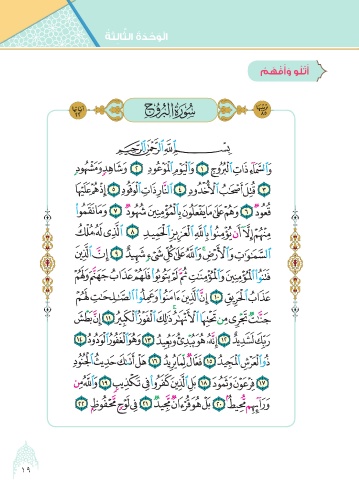 الوَحْدَةُ الثّالِثَةُ
أَتْلُو وَأَفْهَمُ
سُورَةُ البُرُوجِ
بِسْمِ اللَّهِ الرَّحْمَٰنِ الرَّحِيمِ
وَالسَّمَاءِ ذَاتِ الْبُرُوجِ ١ وَالْيَوْمِ الْمَوْعُودِ ٢ وَشَاهِدٍ وَمَشْهُودٍ
٣ قُتِلَ أَصْحَٰبُ الْأُخْدُودِ ٤ النَّارِ ذَاتِ الْوَقُودِ ٥ إِذْ هُمْ عَلَيْهَا
قُعُودٌ ٦ وَهُمْ عَلَىٰ مَا يَفْعَلُونَ بِالْمُؤْمِنِينَ شُهُودٌ ٧ وَمَا نَقَمُوا
مِنْهُمْ إِلَّا أَن يُؤْمِنُوا بِاللَّهِ الْعَزِيزِ الْحَمِيدِ ٨ الَّذِي لَهُ مُلْكُ
السَّمَٰوَٰتِ وَالْأَرْضِ وَاللَّهُ عَلَىٰ كُلِّ شَيْءٍ شَهِيدٌ ٩ إِنَّ الَّذِينَ
فَتَنُوا الْمُؤْمِنِينَ وَالْمُؤْمِنَٰتِ ثُمَّ لَمْ يَتُوبُوا فَلَهُمْ عَذَابُ جَهَنَّمَ وَلَهُمْ
عَذَابُ الْحَرِيقِ ١٠ إِنَّ الَّذِينَ ءَامَنُوا وَعَمِلُوا الصَّٰلِحَٰتِ لَهُمْ
جَنَّٰتٌ تَجْرِي مِن تَحْتِهَا الْأَنْهَٰرُ ذَٰلِكَ الْفَوْزُ الْكَبِيرُ ١١ إِنَّ بَطْشَ
رَبِّكَ لَشَدِيدٌ ١٢ إِنَّهُ هُوَ يُبْدِئُ وَيُعِيدُ ١٣ وَهُوَ الْغَفُورُ الْوَدُودُ ١٤
ذُو الْعَرْشِ الْمَجِيدُ ١٥ فَعَّالٌ لِّمَا يُرِيدُ ١٦ هَلْ أَتَىٰكَ حَدِيثُ الْجُنُودِ
١٧ فِرْعَوْنَ وَثَمُودَ ١٨ بَلِ الَّذِينَ كَفَرُوا فِي تَكْذِيبٍ ١٩ وَاللَّهُ مِن
وَرَائِهِم مُّحِيطٌ ٢٠ بَلْ هُوَ قُرْءَانٌ مَّجِيدٌ ٢١ فِي لَوْحٍ مَّحْفُوظٍ ٢٢
١٩